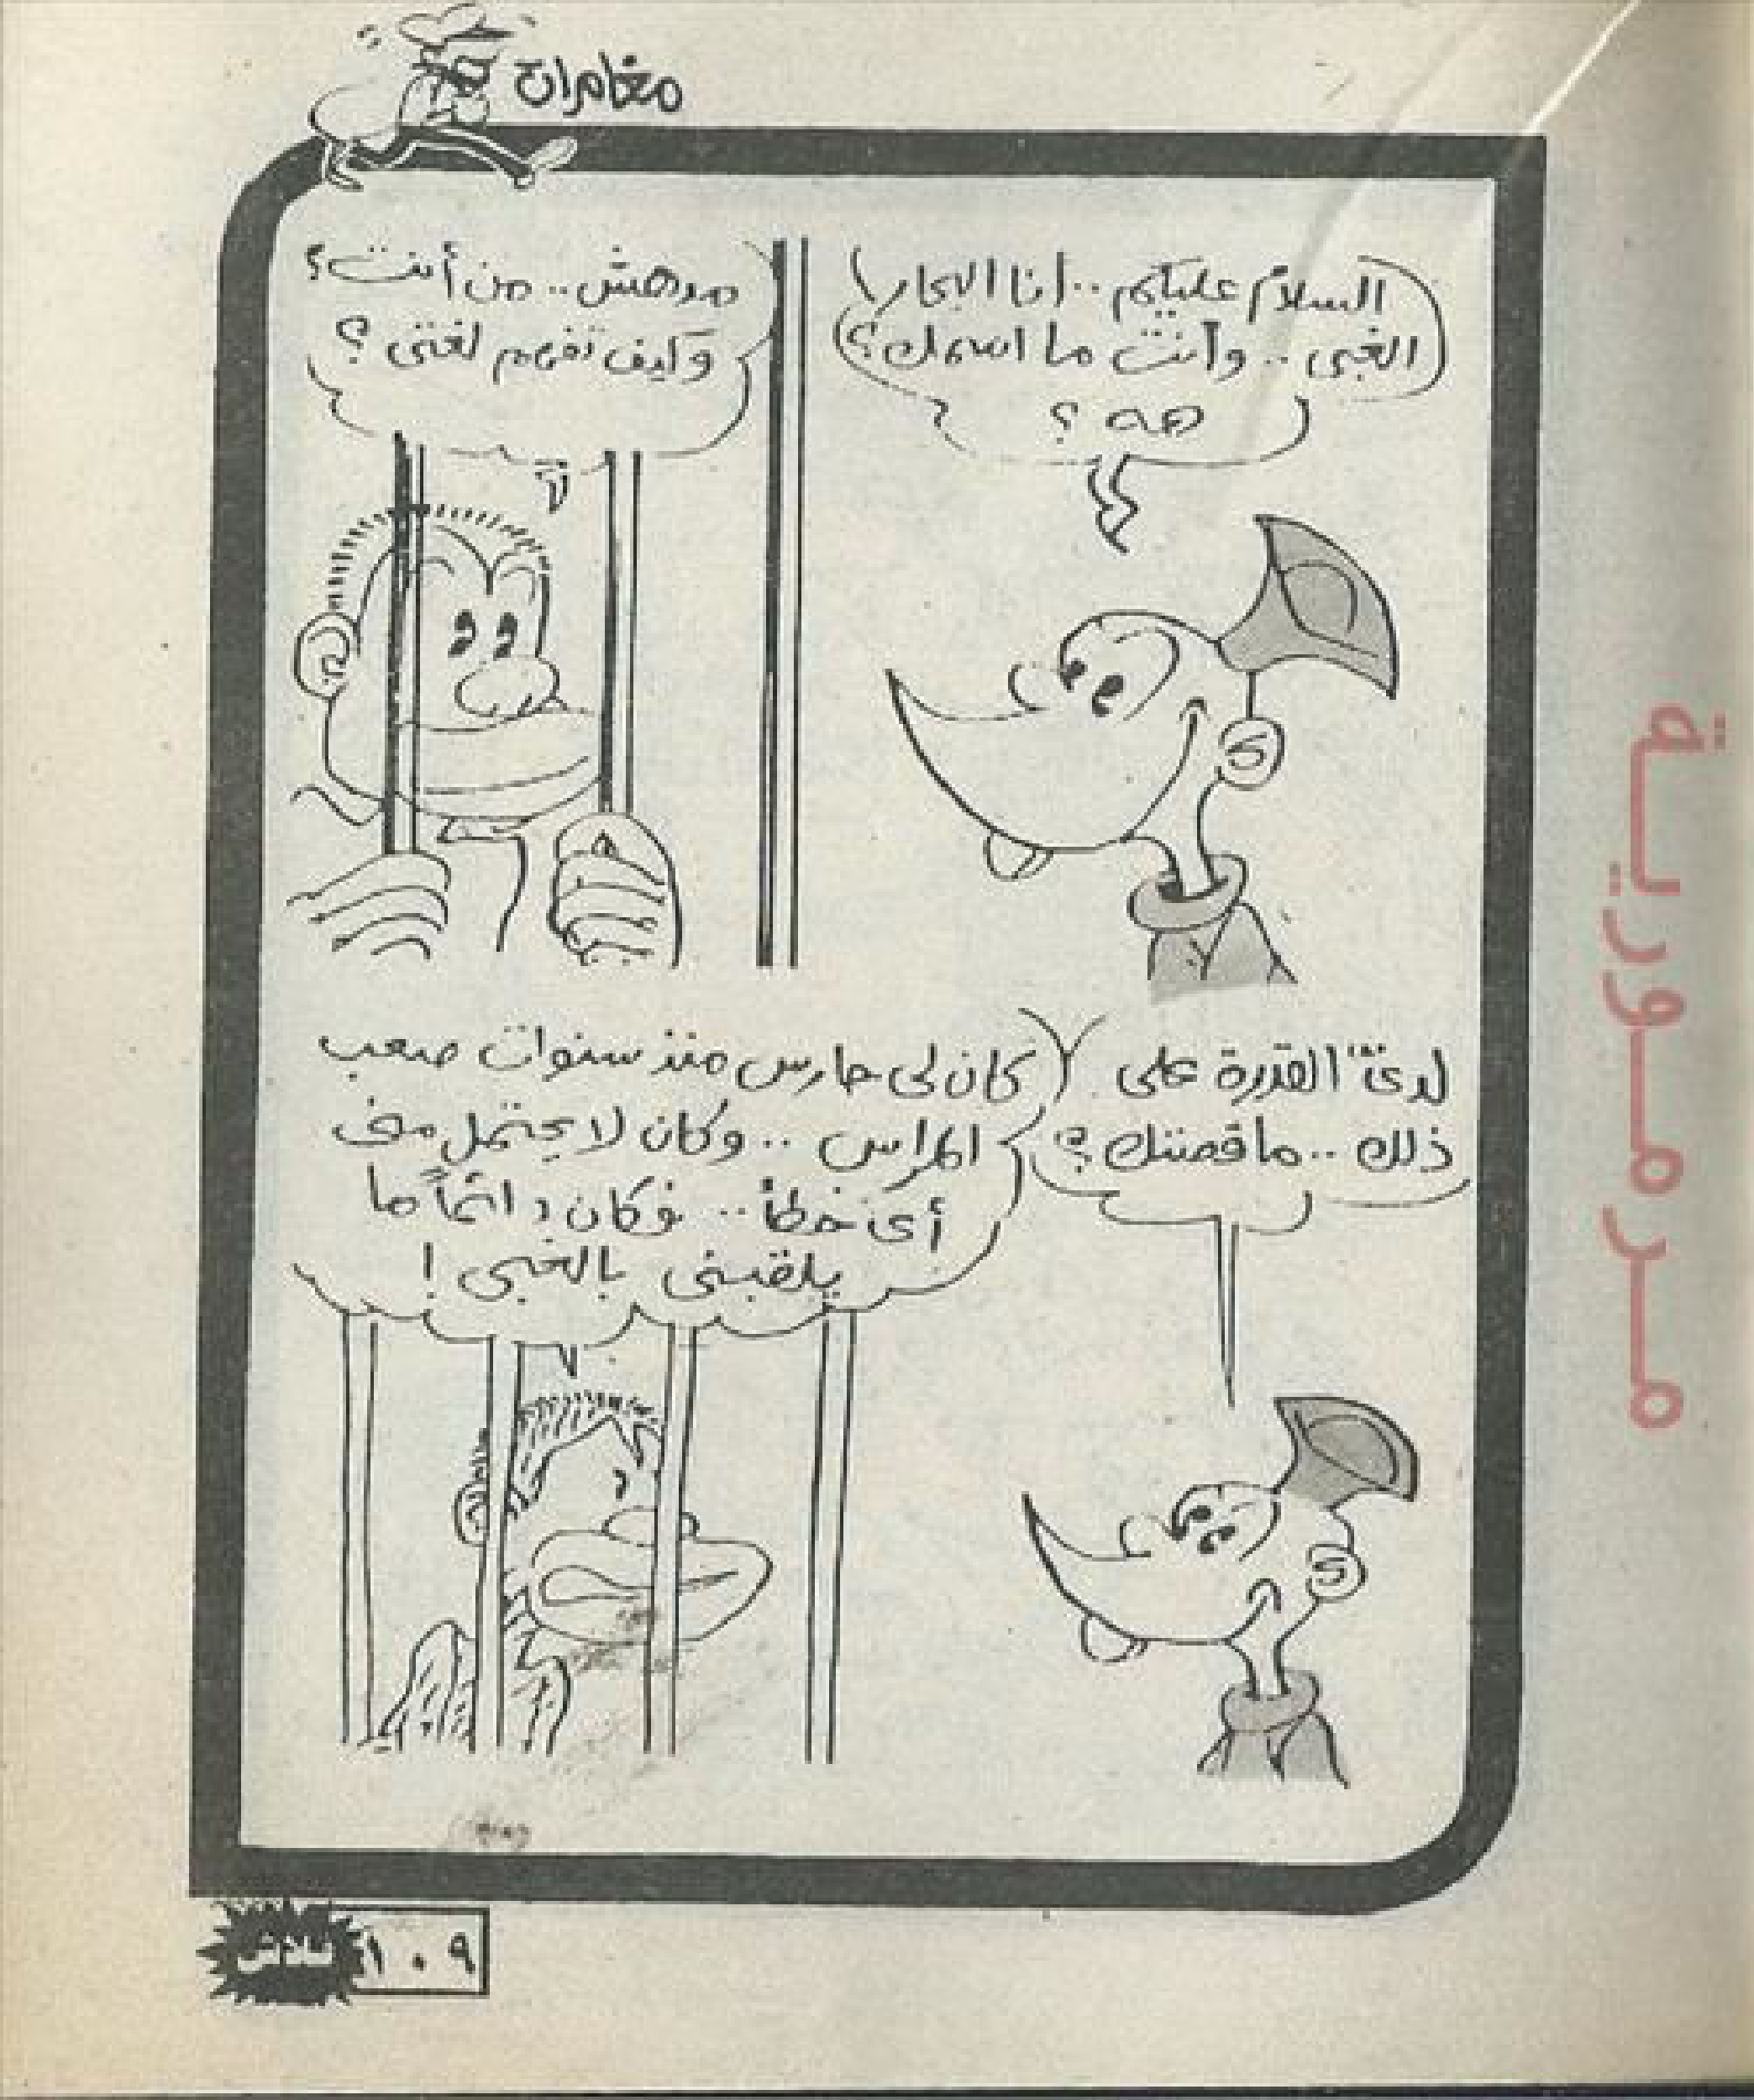 مغامرات
السلام عليكم .. أنا البحار
الغبى .. وأنت ما اسمك؟
هه ؟
مدهش .. من أنت؟
وكيف تفهم لغتى ؟
لدىّ القدرة على
ذلك .. ما قصتك ؟
كان لى حارس منذ سنوات صعب
المراس .. وكان لا يحتمل منى
أى خطأ .. فكان دائماً ما
يلقبنى بالغبى !
مرمورية
فلاش
١٠٩